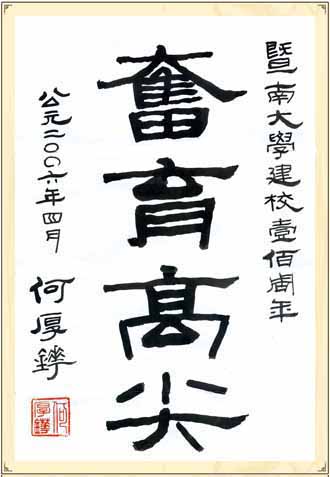 暨南大學建校壹佰周年
奮育髙尖
公元二〇〇六年四月
何厚鏵
何厚鏵